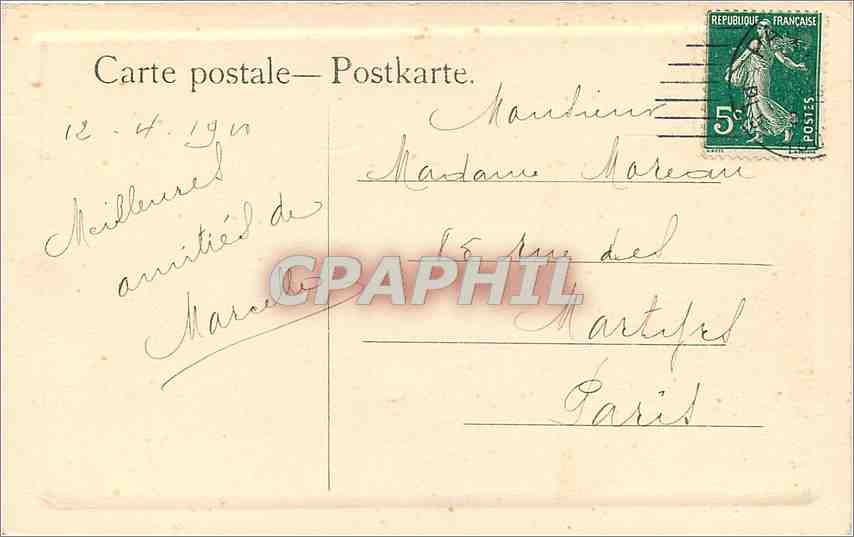 Carte postale — Postkarte.
12 - 4 . 19
Meilleures
amitiés de
Marcelle
Monsieur
Madame Moreau
rue des
Martyrs
Paris
REPUBLIQUE FRANÇAISE
5c
POSTES
CPAPHIL